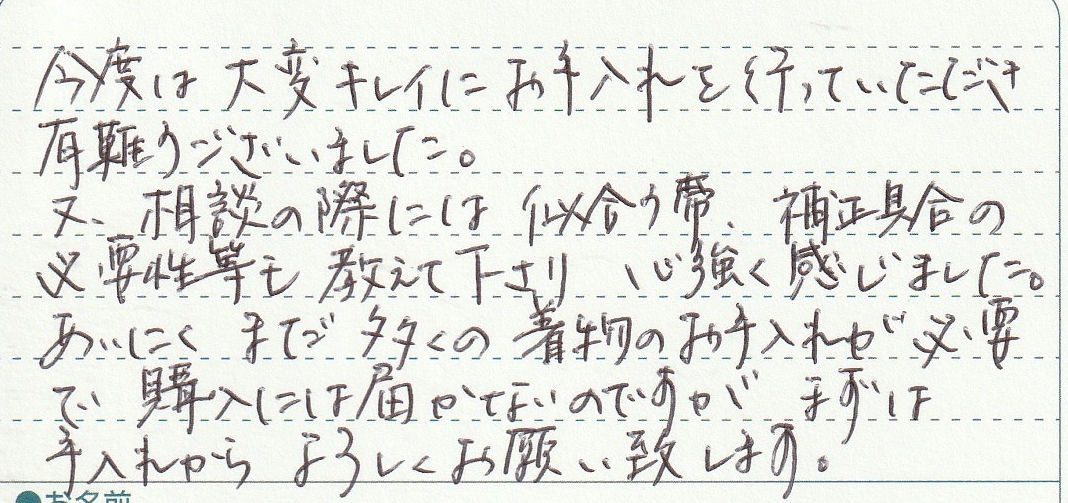 今度は大変キレイにお手入れを行っていただき
有難うございました。
又、相談の際には似合う帯、補正具合の
必要性等も教えて下さり 心強く感じました。
あいにく まだ 多くの着物のお手入れが必要
で 購入には届かないのですが まずは
手入れから よろしくお願い致します。
●お名前